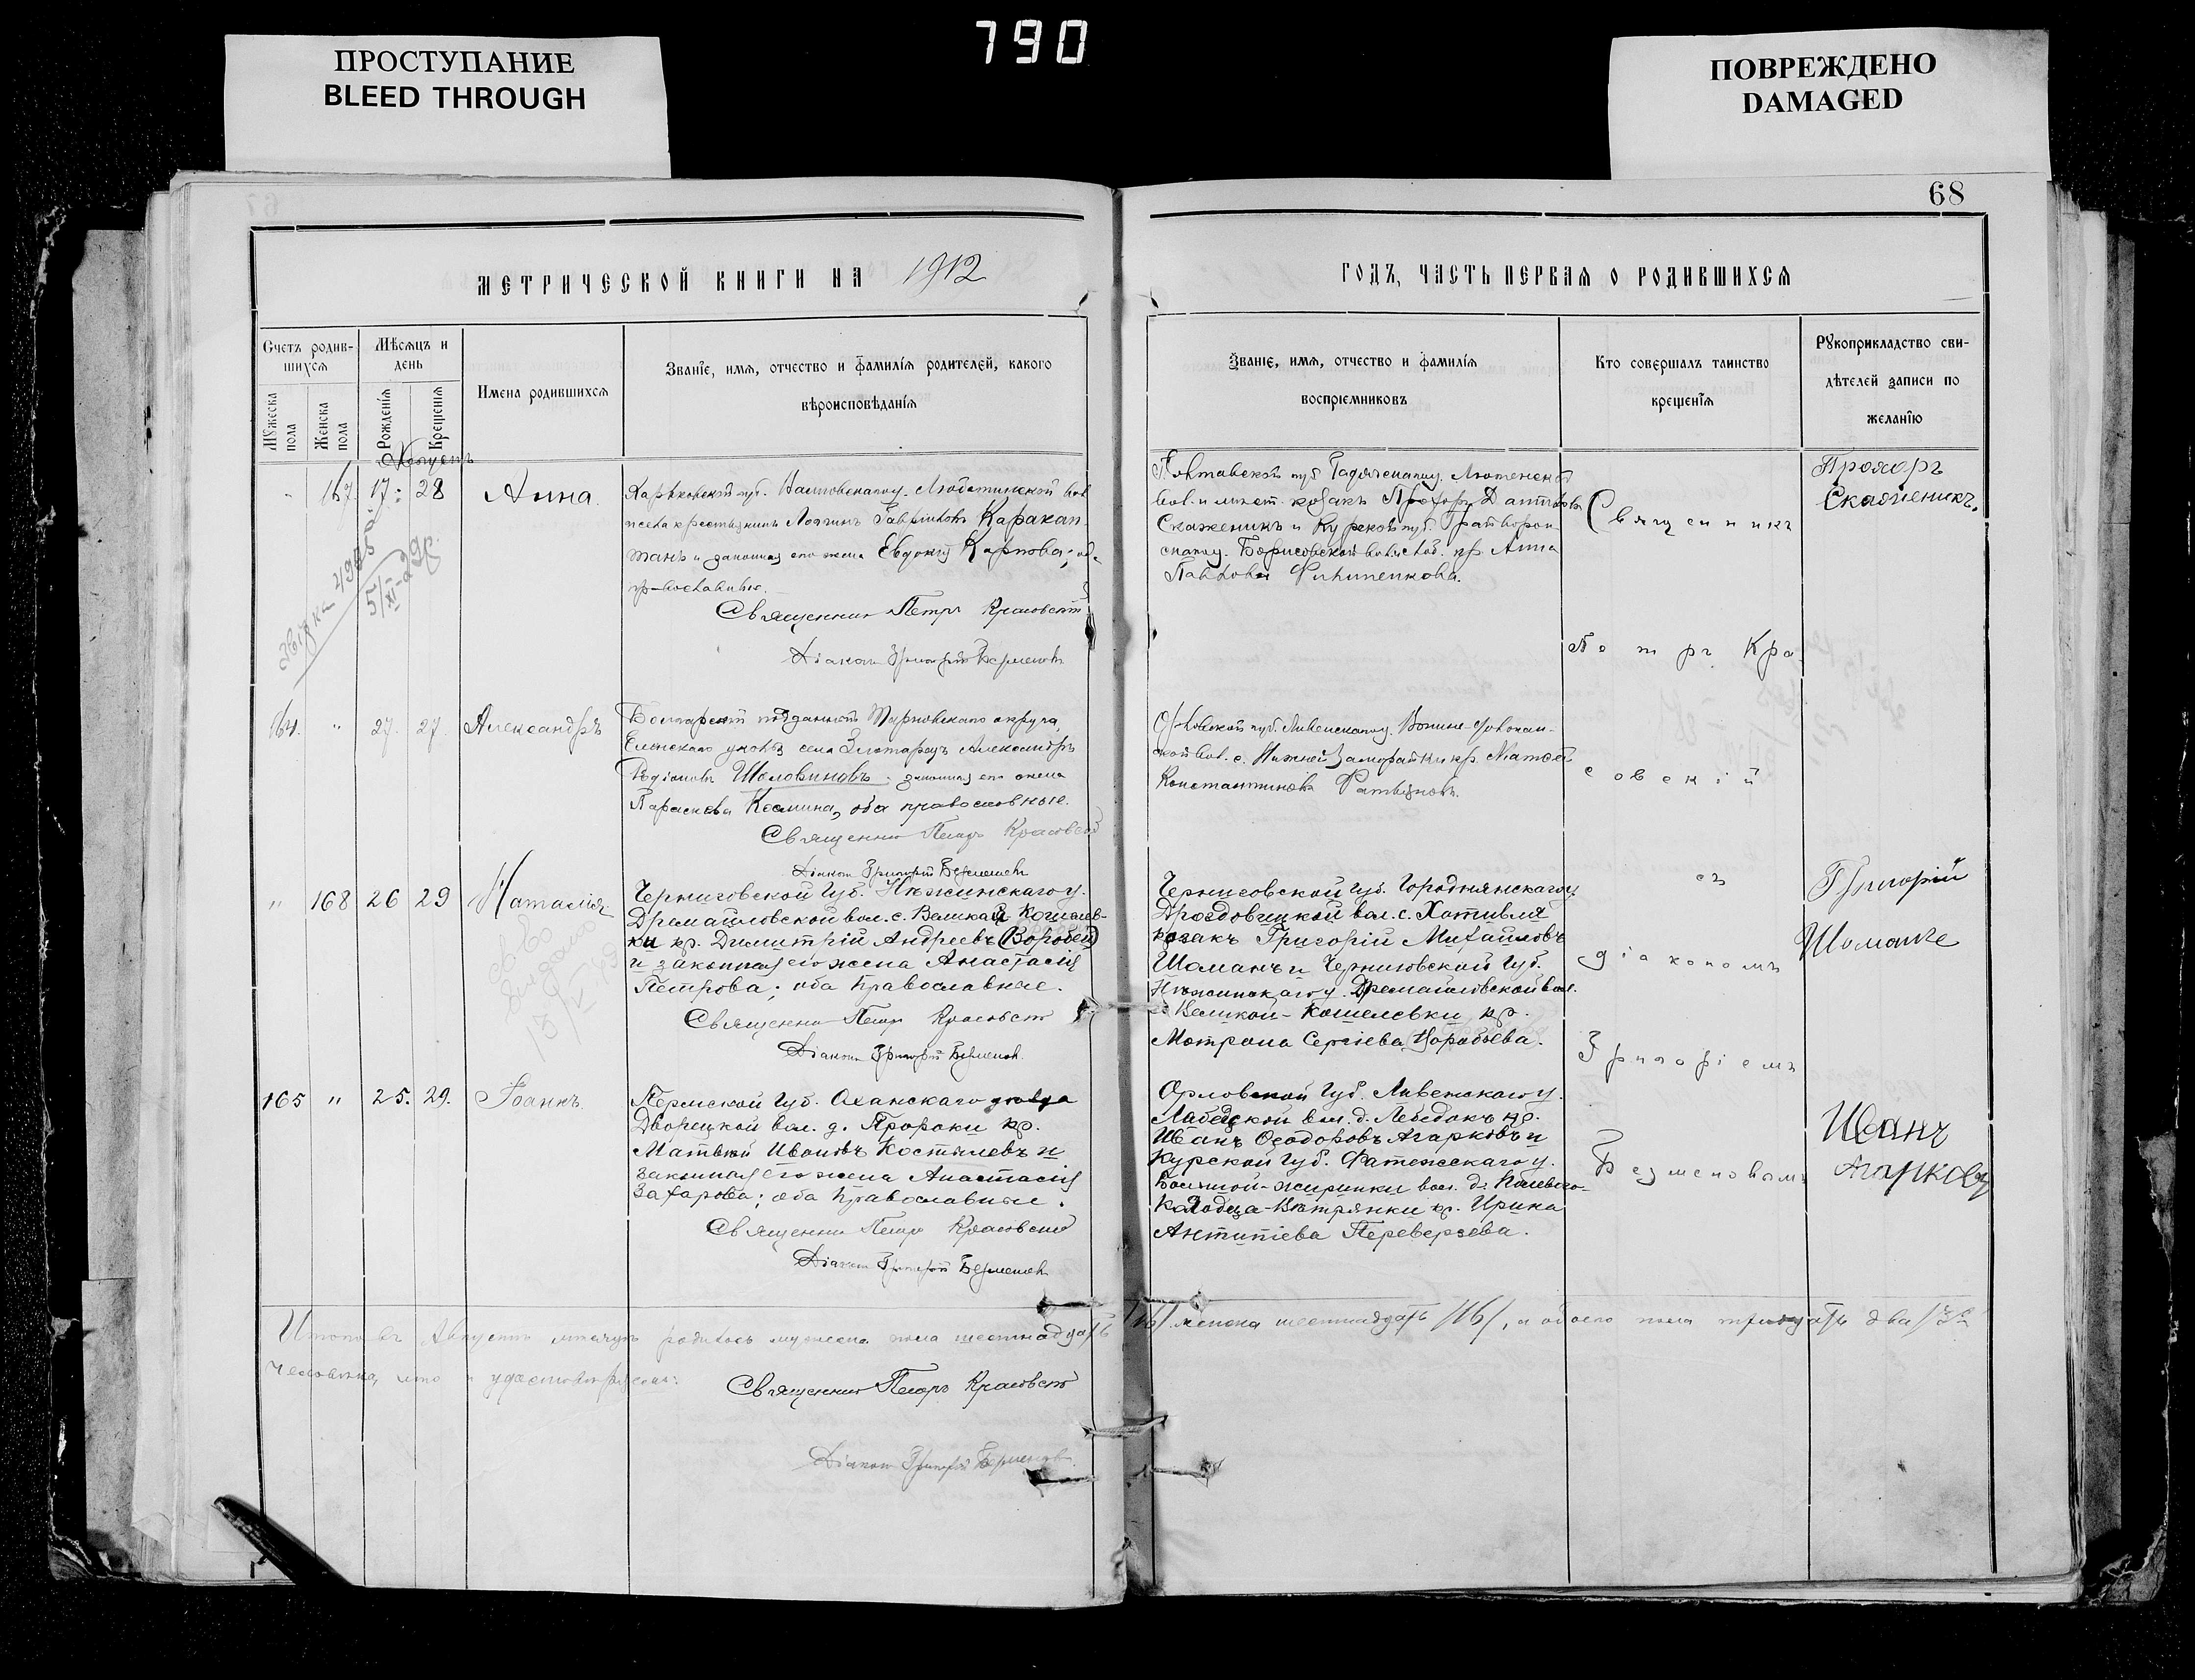 790
ПРОСТУПАНИЕ
BLEED THROUGH
ПОВРЕЖДЕНО
DAMAGED
68
МЕТРИЧЕСКОЙ КНИГИ НА 1912
ГОДЪ, ЧАСТЬ ПЕРВАЯ О РОДИВШИХСЯ
Счетъ родив-
шихся
Мѣсяцъ и
день
Мужеска
пола
Женска
пола
Рожденія
Крещенія
Имена родившихся
Званіе, имя, отчество и фамилія родителей, какого
вѣроисповѣданія
Званіе, имя, отчество и фамилія
воспріемниковъ
Кто совершалъ таинство
крещенія
Рукоприкладство сви-
дѣтелей записи по
желанію
Августъ
167. 17. 28 Анна.
Харьковской губ. Люботинской вол.
Гавріиловъ Каракан-
танъ и законная его жена Евдокія Карпова; оба
православные.
Священникъ Петръ Красовскій
Діаконъ Григорій Безменовъ
Полтавской губ. Гадячскаго у. Лютенской
вол. и мѣст. козакъ Прохоръ
Скаженикъ и Курской губ. Грайворон-
скаго у. Борисовской вол. и слоб. кр. Анна
Павлова Филипенкова.
Прохоръ
Скаженикъ.
164. " 27. 27. Александръ
Болгарскій подданный Тырновскаго округа,
Еленскаго села Златарецъ Александръ
Шаловиновъ и законная его жена
Параскева Козмина, оба православные.
Священникъ Петръ Красовскій
Діаконъ Григорій Безменовъ
Орловской губ. Ливенскаго у.
вол. с. Нижней кр. Матѳей
Константиновъ
" 168 26 29 Наталія
Черниговской Губ. Нѣжинскаго у.
Дремайловской вол. с. Великой Кошелев-
ки кр. Димитрій Андреевъ (Воробей)
и законная его жена Анастасія
Петрова; оба Православные.
Священникъ Петръ Красовскій
Діаконъ Григорій Безменовъ
Черниговской Губ. Городнянскаго у.
Дроздовицкой вол. с. Хотивля
козакъ Григорій Михайловъ
Шоманъ и Черниговской Губ.
Нѣжинскаго у. Дремайловской вол.
с. Великой-Кошелевки кр.
Мотрона Сергіева Воробьева.
Григорій
165 " 25. 29. Іоаннъ.
Пермской Губ. Оханскаго уѣзда
Дворецкой вол. д. Пророки кр.
Матвѣй Ивановъ Костылевъ и
законная его жена Анастасія
Захарова; оба Православные.
Священникъ Петръ Красовскій
Діаконъ Григорій Безменовъ
Орловской Губ. Ливенскаго у.
вол. д. Лебедокъ кр.
Иванъ Ѳеодоровъ Агарковъ и
Курской Губ. Фатежскаго у.
Большой-Жировки вол. д.
Колодца-Вѣтрянки кр. Ирина
Антипіева Переверзева.
Иванъ
Агарковъ
Священникъ
Петръ Кра-
совскій
съ
діакономъ
Григоріемъ
Безменовымъ
Итого въ Августѣ мѣсяцѣ родилось мужеска пола шестнадцать /16/ женска шестнадцать /16/, а обоего пола тридцать два /32/
человѣка, что и удостовѣряемъ:
Священникъ Петръ Красовскій
Діаконъ Григорій Безменовъ